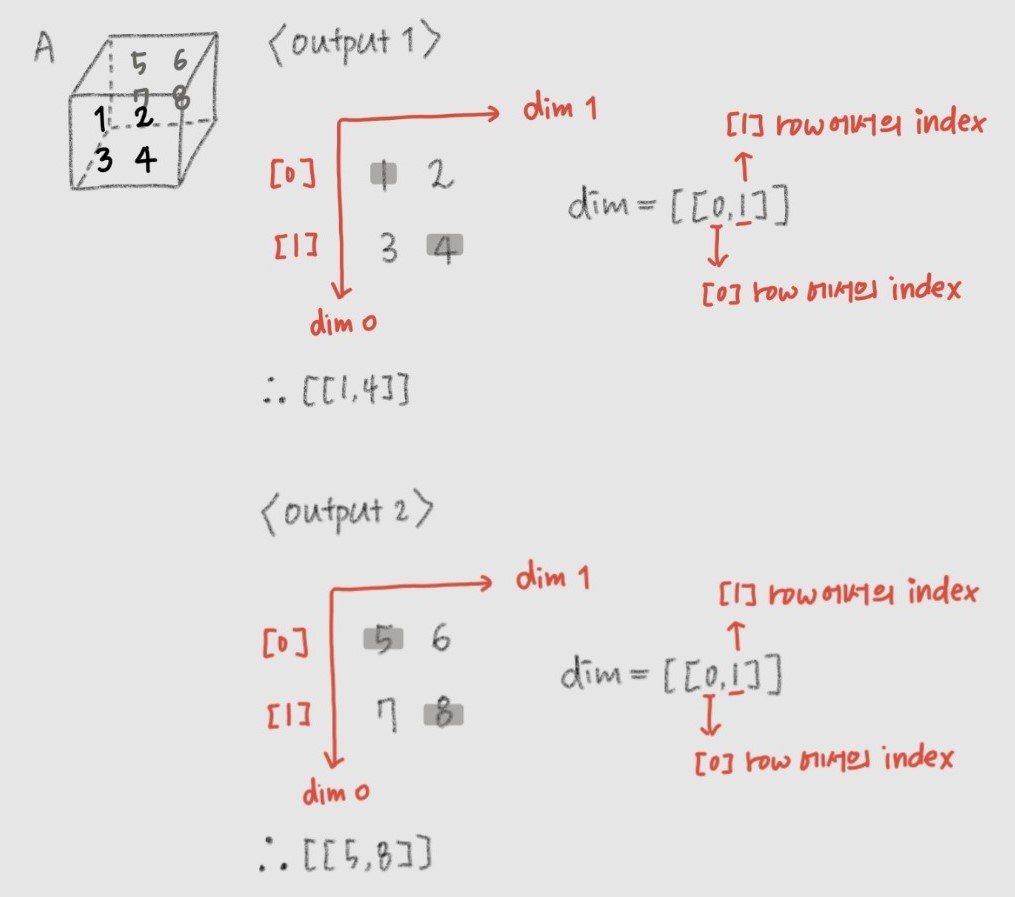 A
5 6
7 8
1 2
3 4
〈output 1〉
dim 1
[0] 1 2
[1] 3 4
dim 0
dim = [[0,1]]
[1] row에서의 index
[0] row에서의 index
∴ [[1,4]]
〈output 2〉
dim 1
[0] 5 6
[1] 7 8
dim 0
dim = [[0,1]]
[1] row에서의 index
[0] row에서의 index
∴ [[5,8]]